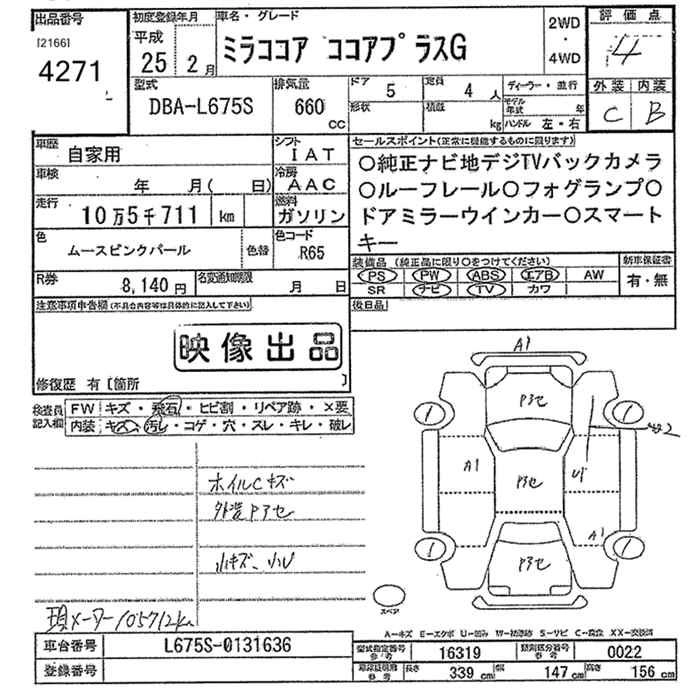 出品番号 初度登録年月 車名・グレード 2WD ・ 4WD 評価点
[2166] 平成 25 2月 ミラココア ココアプラスG 4
4271
型式 排気量 ドア 5 定員 4人 ディーラー・並行 外装 内装
DBA-L675S 660 CC 形状 積載 kg モデル年式 年 C B
ハンドル 左・右
車歴 自家用 シフト IAT セールスポイント(正常に機能するものに限ります)
車検 年 月( 日) 冷房 AAC
走行 10万5千711 km 燃料 ガソリン
色 ムースピンクパール 色替 色コード R65
○純正ナビ地デジTVバックカメラ
○ルーフレール○フォグランプ○
ドアミラーウインカー○スマート
キー
装備品 (純正品に限り○をつけてください) 新車保証書
PS PW ABS エアB AW 有・無
SR ナビ TV カワ
R券 8,140円 名変通知期限 月 日
後日品
注意事項申告欄(不具合内容等は具体的に記入して下さい)
映像出品
修復歴 有〔箇所 〕
検査員記入欄 FW キズ・飛石・ヒビ割・リペア跡・×要
内装 キズ・汚レ・コゲ・穴・スレ・キレ・破レ
ホイルCキズ
外装Pアセ
小キズ、小凹
現メーター105712km
A1
Pアセ
A1
Pアセ
A1
Pアセ
スペア
A-キズ E-エクボ U-凹み W-補修跡 S-サビ C-腐食 XX-交換済
車台番号 L675S-0131636
型式指定番号 参考 16319 類別区分番号 参考 0022
登録番号
参考 長さ 339 cm 幅 147 cm 高さ 156 cm